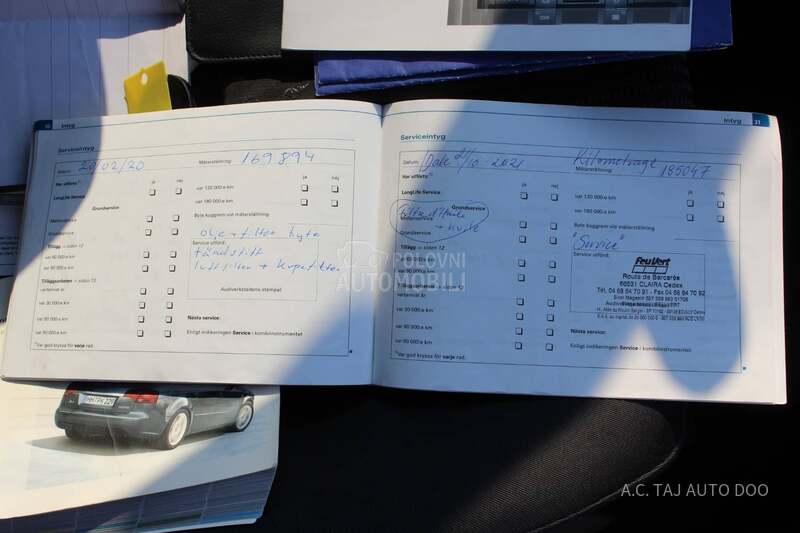 10 Intyg
Datum: 20/02/20 Mätarställning: 169894
Har utförts:
ja nej
LongLife Service:
ja nej
var 120 000:e km
var 180 000:e km
Grundservice
Motoroljeservice
Grundservice
Tillägg → sidan 12
var 60 000:e km
var 90 000:e km
Tilläggsarbeten → sidan 13
vartannat år
var 30 000:e km
var 60 000:e km
var 90 000:e km
Byte kuggrem vid mätarställning
olje + filter byte
Service utförd:
tändstift
luftfilter + kupefilter
Auktverkstadens stämpel
Nästa service:
Enligt indikeringen Service i kombiinstrumentet
Var god kryssa för varje rad.
Intyg 11
Serviceintyg
Datum: Date 2/10 2021 Kilometrage
Mätarställning: 185047
Har utförts:
ja nej
LongLife Service:
ja nej
var 120 000:e km
var 180 000:e km
Grundservice
Grundservice
Tillägg → sidan 12
var 60 000:e km
var 90 000:e km
Tilläggsarbeten → sidan 13
vartannat år
var 30 000:e km
var 60 000:e km
var 90 000:e km
Byte kuggrem vid mätarställning
"Service"
Service utförd:
Feu Vert
Route de Barcarès
66531 CLAIRA Cedex
Tél. 04 68 64 70 91 - Fax 04 68 64 70 92
Nästa service:
Enligt indikeringen Service i kombiinstrumentet
Var god kryssa för varje rad.
POLOVNI
AUTOMOBILI
A.C. TAJ AUTO DOO